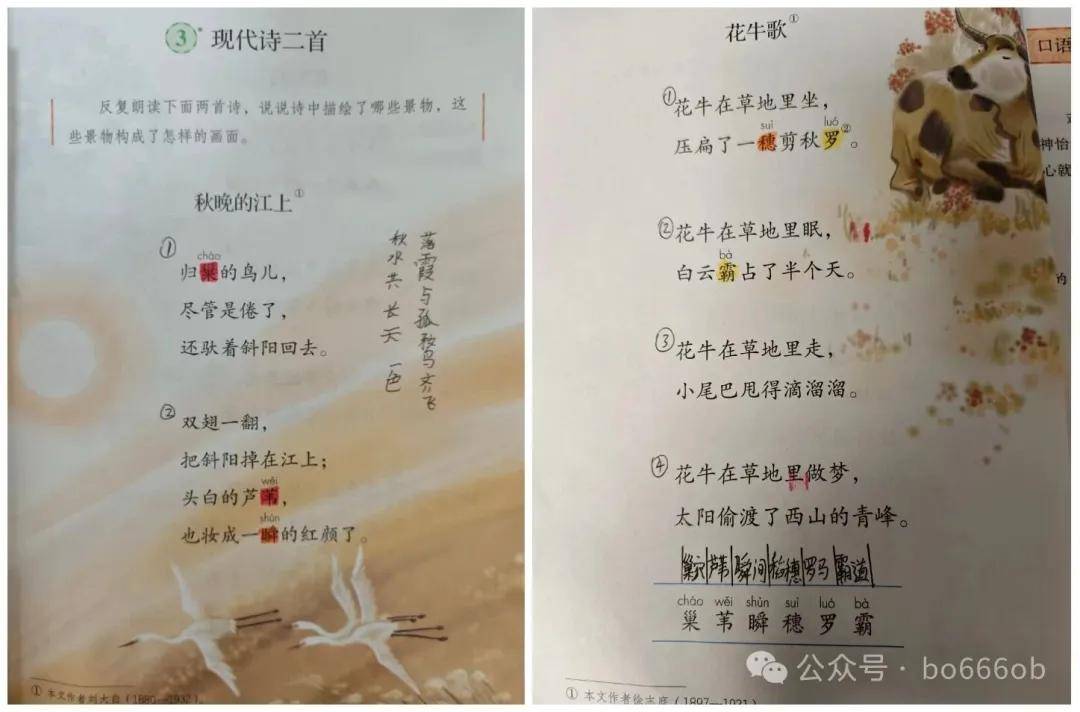 3* 现代诗二首
反复朗读下面两首诗，说说诗中描绘了哪些景物，这
些景物构成了怎样的画面。
秋晚的江上①
①
cháo
归巢的鸟儿，
尽管是倦了，
还驮着斜阳回去。
②
双翅一翻，
把斜阳掉在江上；
wěi
头白的芦苇，
shùn
也妆成一瞬的红颜了。
落霞与孤鹜齐飞
秋水共长天一色
① 本文作者刘大白（1880—1932）
花牛歌①
①花牛在草地里坐，
suì luó
压扁了一穗剪秋罗②。
②花牛在草地里眠，
bà
白云霸占了半个天。
③花牛在草地里走，
小尾巴甩得滴溜溜。
④花牛在草地里做梦，
太阳偷渡了西山的青峰。
巢穴 芦苇 瞬间 稻穗 罗马 霸道
cháo wěi shùn suì luó bà
巢 苇 瞬 穗 罗 霸
① 本文作者徐志摩（1897—1931）
口语
神怡
心就
公众号·bo666ob